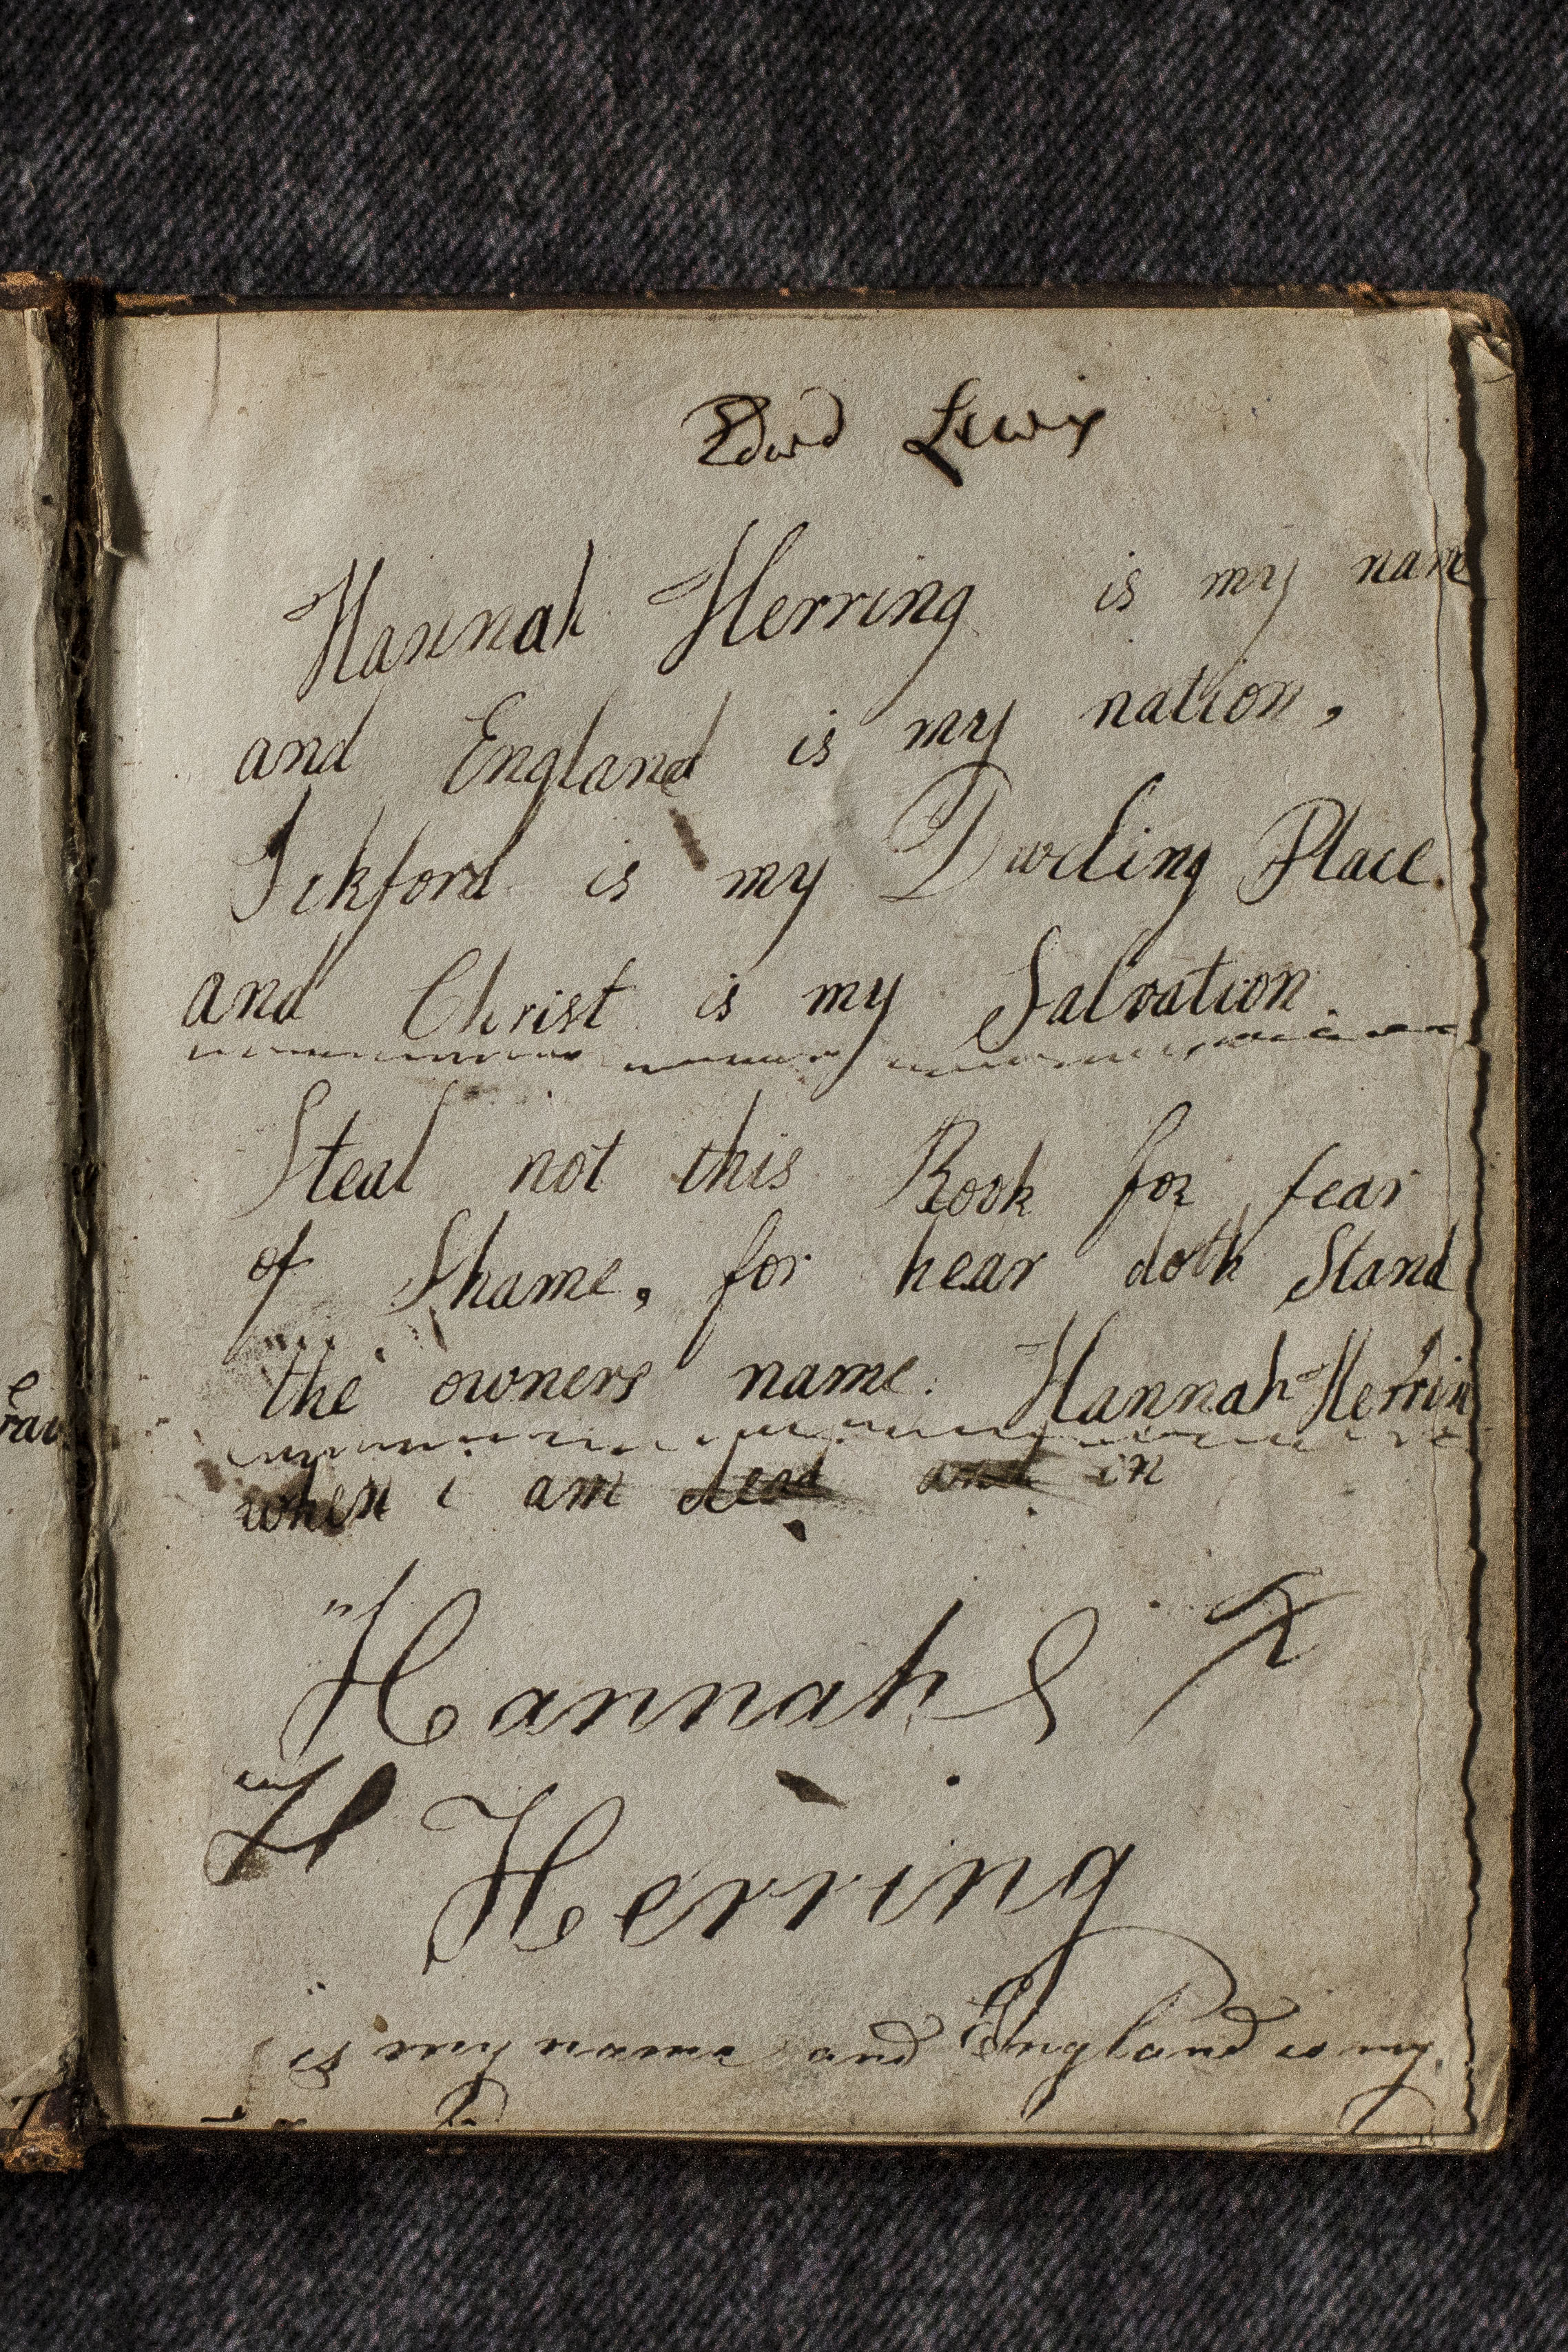 Edwd Lewis
Hannah Herring is my nam
and England is my nation,
Ickford is my Dweling Place.
and Christ is my Salvation
Steal not this Book for fear
of Shame, for hear doth Stand
the owners name. Hannah Herrin
when i am dead and in
Hannah
H Herring
is my name and England is my